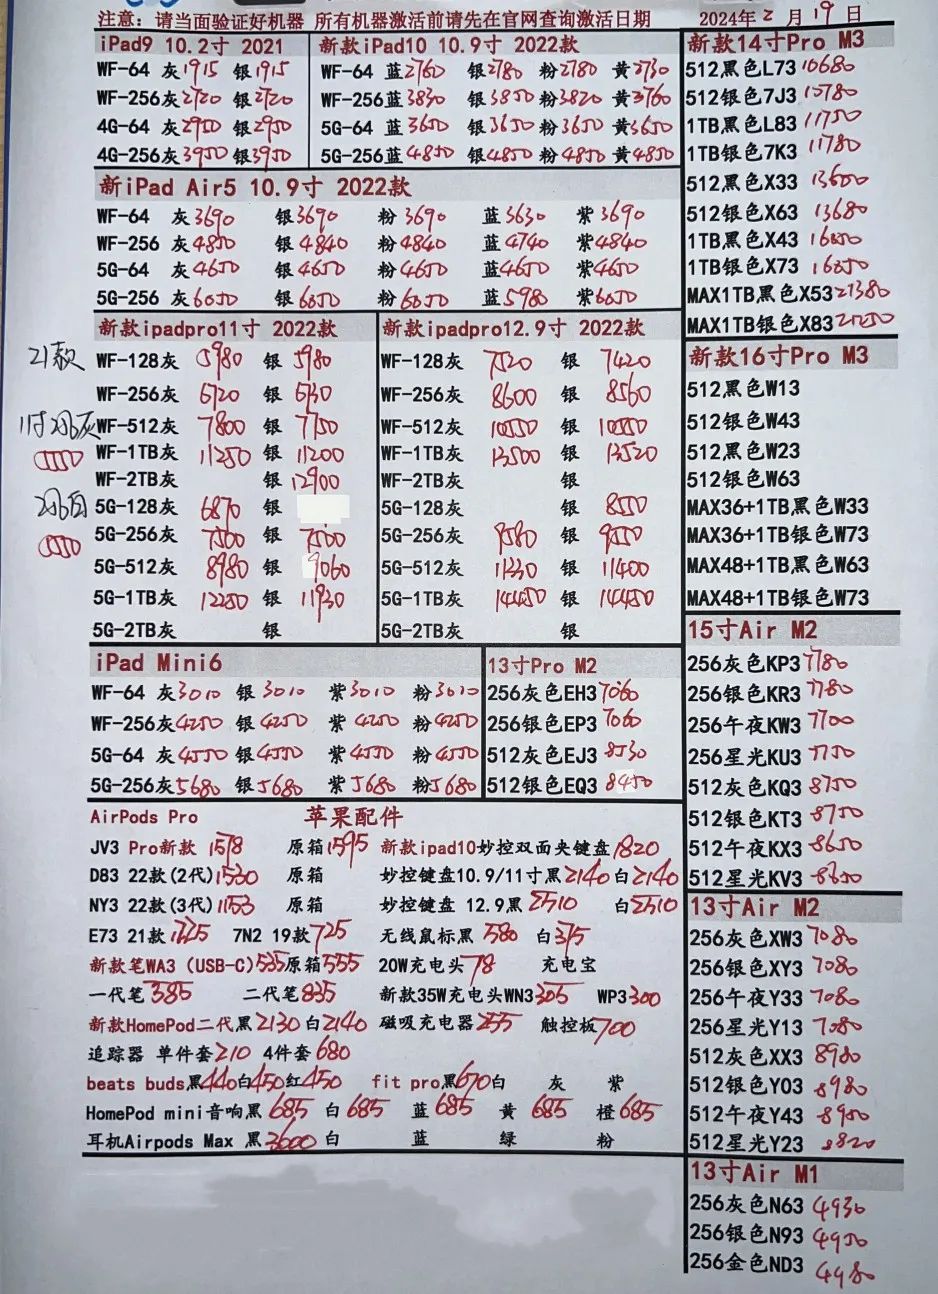 注意：请当面验证好机器 所有机器激活前请先在官网查询激活日期 2024年2月19日
iPad9 10.2寸 2021
WF-64 灰1915 银1915
WF-256灰2720 银2720
4G-64 灰2950 银2950
4G-256灰3950 银3950
新款iPad10 10.9寸 2022款
WF-64 蓝2760 银2780 粉2780 黄2730
WF-256蓝3830 银3850 粉3820 黄3760
5G-64 蓝3650 银3650 粉3650 黄3650
5G-256蓝4850 银4850 粉4850 黄4850
新iPad Air5 10.9寸 2022款
WF-64 灰3690 银3690 粉3690 蓝3630 紫3690
WF-256 灰4850 银4840 粉4840 蓝4740 紫4840
5G-64 灰4650 银4650 粉4650 蓝4650 紫4650
5G-256 灰6050 银6050 粉6050 蓝5980 紫6050
新款ipadpro11寸 2022款
21款
WF-128灰 5980 银 5980
WF-256灰 6720 银 6730
11寸256灰
WF-512灰 7800 银 7750
5550
WF-1TB灰 11250 银 11200
WF-2TB灰 银 12900
5G-128灰 6870 银
5G-256灰 7500 银 7500
5550
5G-512灰 8980 银 9060
5G-1TB灰 12250 银 11930
5G-2TB灰 银
新款ipadpro12.9寸 2022款
WF-128灰 7520 银 7420
WF-256灰 8600 银 8560
WF-512灰 10550 银 10550
WF-1TB灰 13500 银 13520
WF-2TB灰 银
5G-128灰 银 8550
5G-256灰 9580 银 9550
5G-512灰 11230 银 11400
5G-1TB灰 14450 银 14450
5G-2TB灰 银
iPad Mini6
WF-64 灰3010 银3010 紫3010 粉3010
WF-256灰4250 银4250 紫4250 粉4250
5G-64 灰4550 银4550 紫4550 粉4550
5G-256灰5680 银5680 紫5680 粉5680
13寸Pro M2
256灰色EH3 7060
256银色EP3 7060
512灰色EJ3 8530
512银色EQ3 8450
AirPods Pro 苹果配件
JV3 Pro新款 1578 原箱1595 新款ipad10妙控双面夹键盘1820
D83 22款(2代)1530 原箱 妙控键盘10.9/11寸黑2140白2140
NY3 22款(3代)1153 原箱 妙控键盘 12.9黑2510 白2510
E73 21款1225 7N2 19款725 无线鼠标黑 580 白375
新款笔WA3 (USB-C)535原箱555 20W充电头78 充电宝
一代笔585 二代笔835 新款35W充电头WN3305 WP3300
新款HomePod二代黑2130白2140 磁吸充电器255 触控板700
追踪器 单件套210 4件套680
beats buds黑440白450红450 fit pro黑670白 灰 紫
HomePod mini音响黑685 白685 蓝685 黄685 橙685
耳机Airpods Max 黑3600白 蓝 绿 粉
新款14寸Pro M3
512黑色L73 10680
512银色7J3 10780
1TB黑色L83 11750
1TB银色7K3 11780
512黑色X33 13600
512银色X63 13680
1TB黑色X43 16050
1TB银色X73 16050
MAX1TB黑色X53 21380
MAX1TB银色X83
新款16寸Pro M3
512黑色W13
512银色W43
512黑色W23
512银色W63
MAX36+1TB黑色W33
MAX36+1TB银色W73
MAX48+1TB黑色W63
MAX48+1TB银色W73
15寸Air M2
256灰色KP3 7780
256银色KR3 7780
256午夜KW3 7700
256星光KU3 7750
512灰色KQ3 8750
512银色KT3 8750
512午夜KX3 8650
512星光KV3 8650
13寸Air M2
256灰色XW3 7080
256银色XY3 7080
256午夜Y33 7080
256星光Y13 7080
512灰色XX3 8980
512银色Y03 8980
512午夜Y43 8900
512星光Y23 8820
13寸Air M1
256灰色N63 4930
256银色N93 4950
256金色ND3 4980